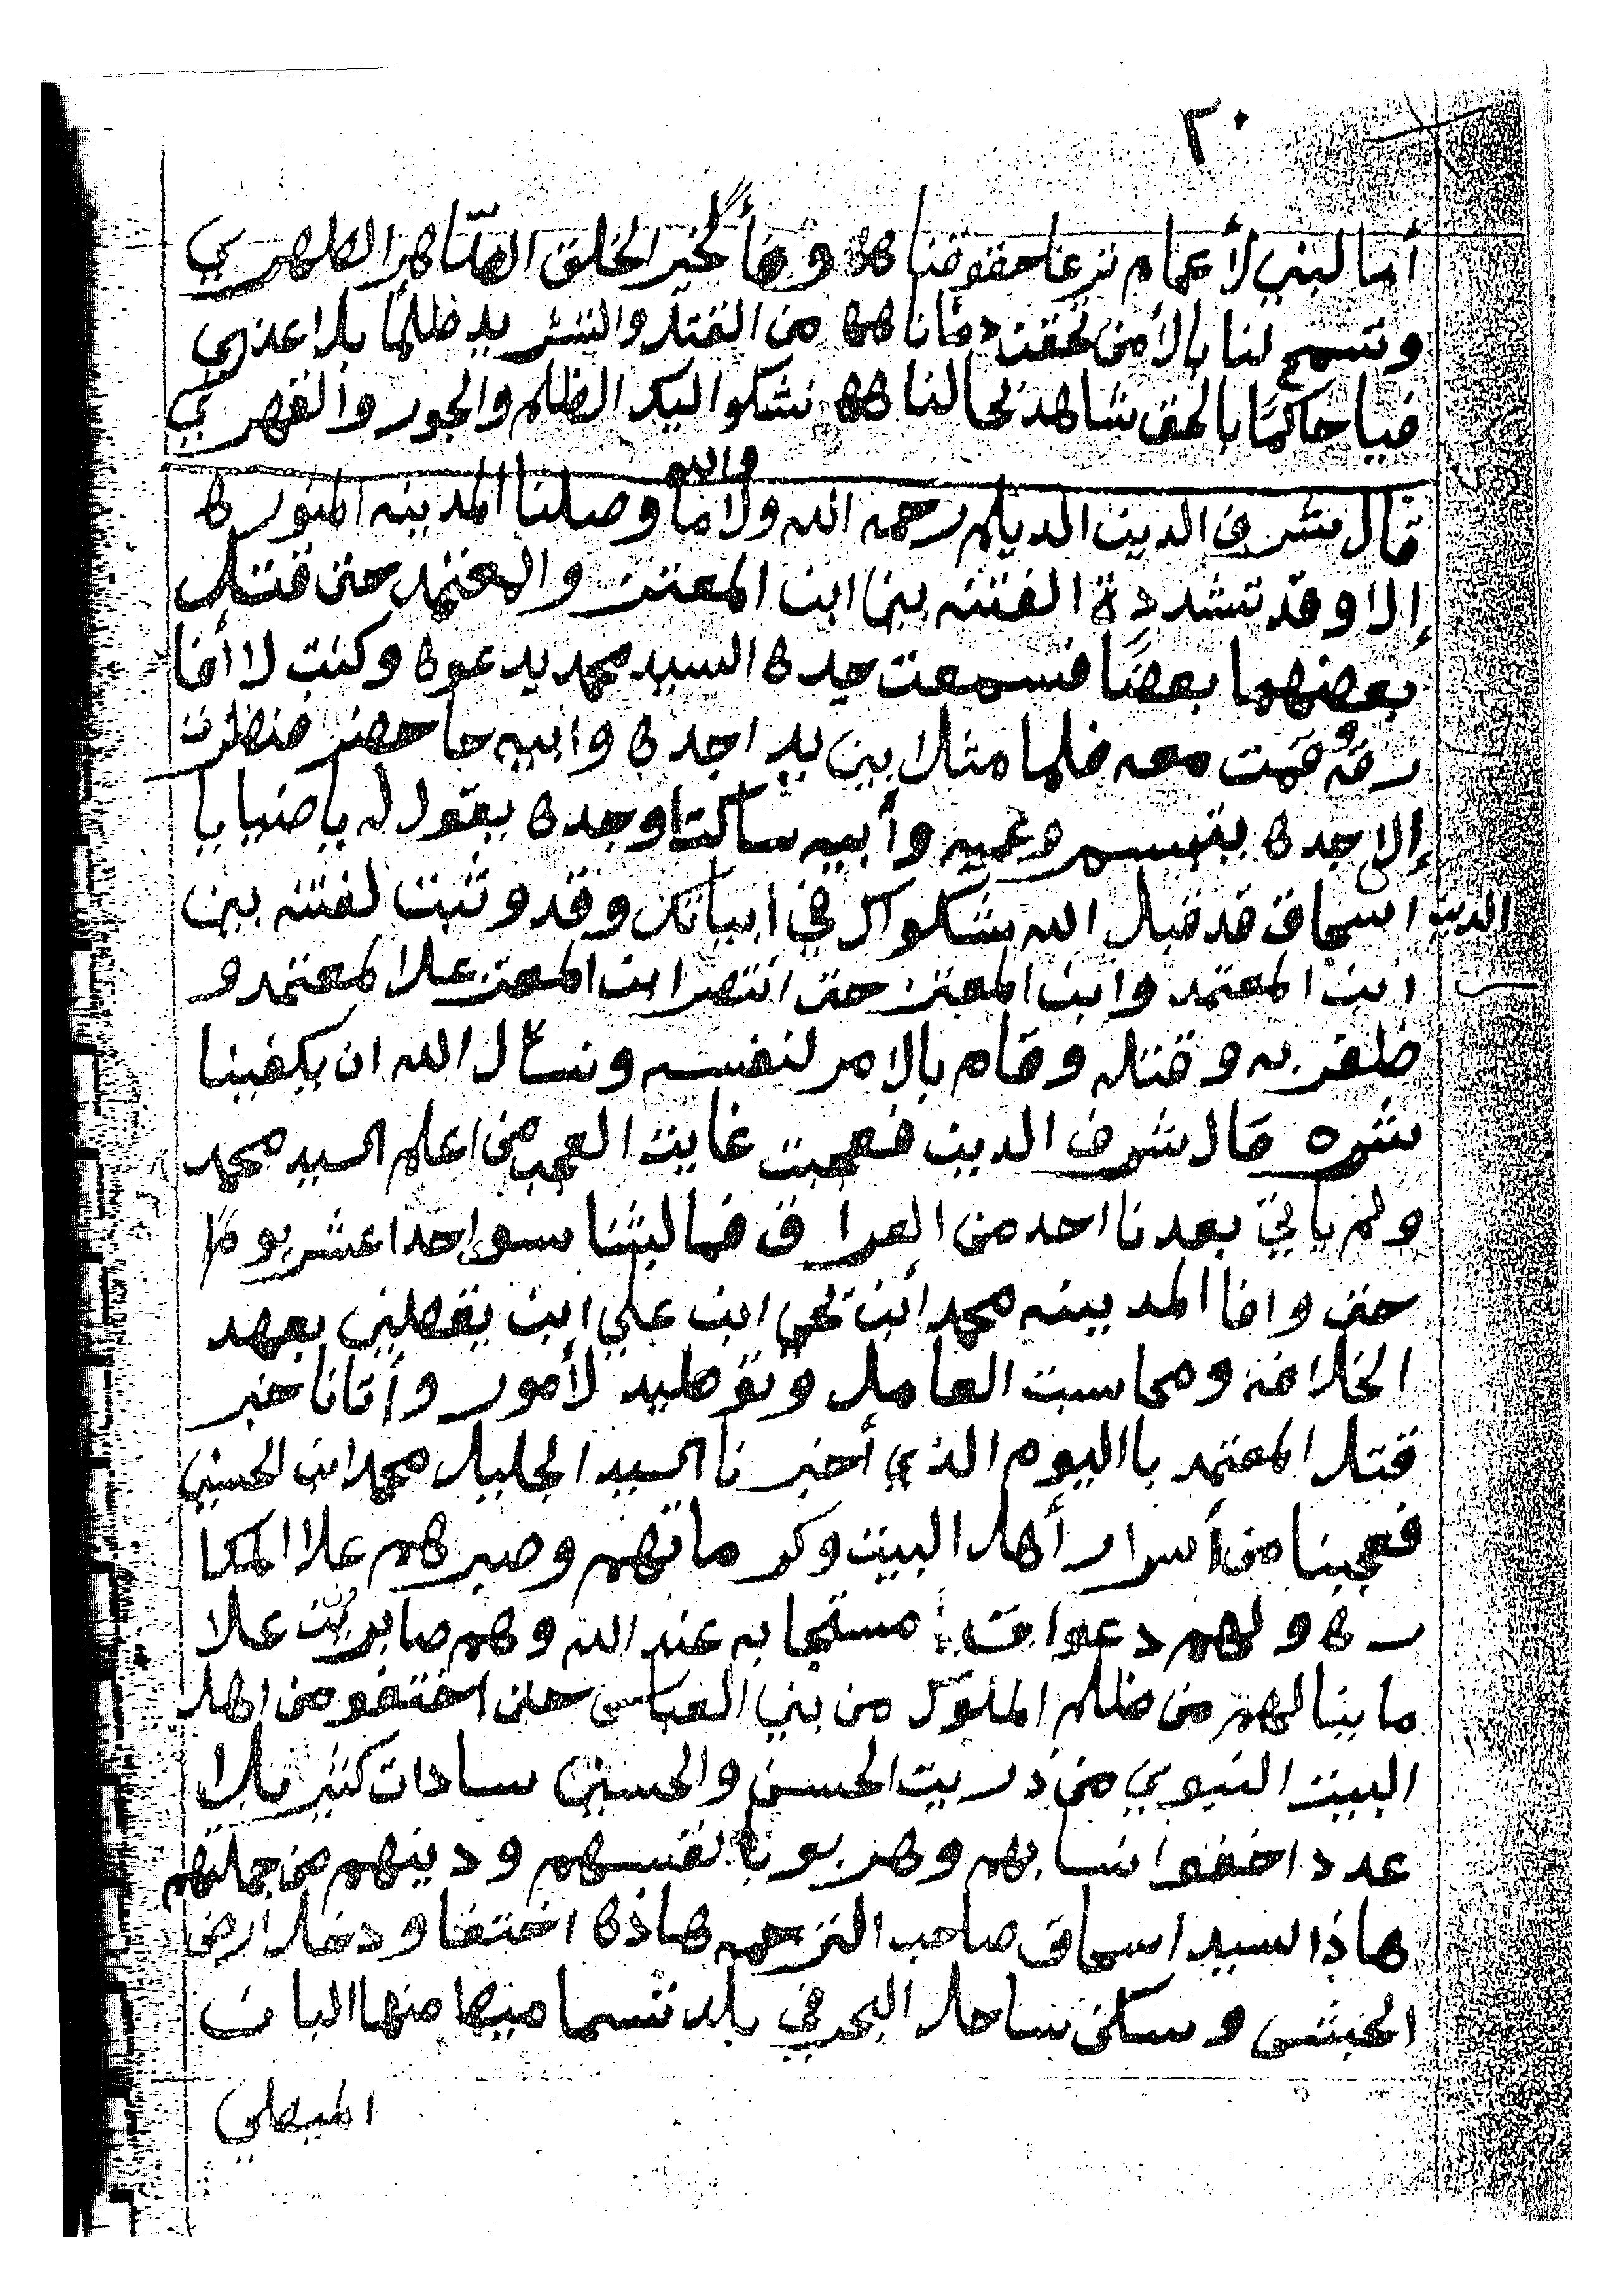 ٢٠
أسا لبني لأعمام نزعا حقوقنا هه وهأ لخير الخلق الطاهر الطهري
وتسمح لنا بالأمن تحقن دمانا هه من القتل والتشريد ظلماً بلا عذري
فيا حاكمًا بالحق شاهد لحالنا هه نشكوا اليك الظلم والجور والقهري
والله
قال شرف الدين الديلم رحمه الله ولاما وصلنا المدينه المنوره
إلا وقد تشددة الفتنه بين ابن المعتز والمعتمد حتى قتل
بعضهما بعضًا فسمعت جده السيد محمد يدعوه وكنت لا أفا
رقه قمت معه فلما مثلا بين يدا جده وابيه حاحضر فنظرت
إلا جده يتبسم وعميه وأبيه ساكتا وجده يقول له يا ضيايا
الدين اسحاق قد قبل الله شكواك في ابياتك وقد وثبت لفتنه بين
ابن المعتمد وابن المعتز حتى انتصر ابن المعتز علا المعتمد و
ظفر به وقتله وقام بالامر لنفسه ونسأل الله ان يكفينا
شره قال شرف الدين فعجبت غايت العجب من اعلم السيد محمد
ولم يأتي بعدنا احد من العراق فما لبثنا سوى احدا عشر يومًا
حتى وافا المدينه محمد أبن يحي ابن علي ابن يقطين بعهد
الخلافه ومحاسبت العامل وتوطيد لأمور وأتانا خبر
قتل المعتمد باليوم الذي أخبرنا السيد الجليل محمد ابن الحسين
فعجبنا من أسرار أهل البيت وكرماتهم وصبرهم علا المكا
ره ولهم دعوات مستجابه عند الله وهم صابرين علا
ما ينالهم من ظلم الملوك من بني العباسى حتى اختفو من اهل
البيت النبوي من ذريت الحسن والحسين سادات كثير بلا
عدد اخفوا نسابهم وهربو بأنفسهم ودينهم من جملتهم
هاذا لسيد اسحاق صاحب الترجمه هاذه اختفا ودخل ارض
الحبشى وسكن بساحل البحر في بلد تسما ميها منها البات
الميطي